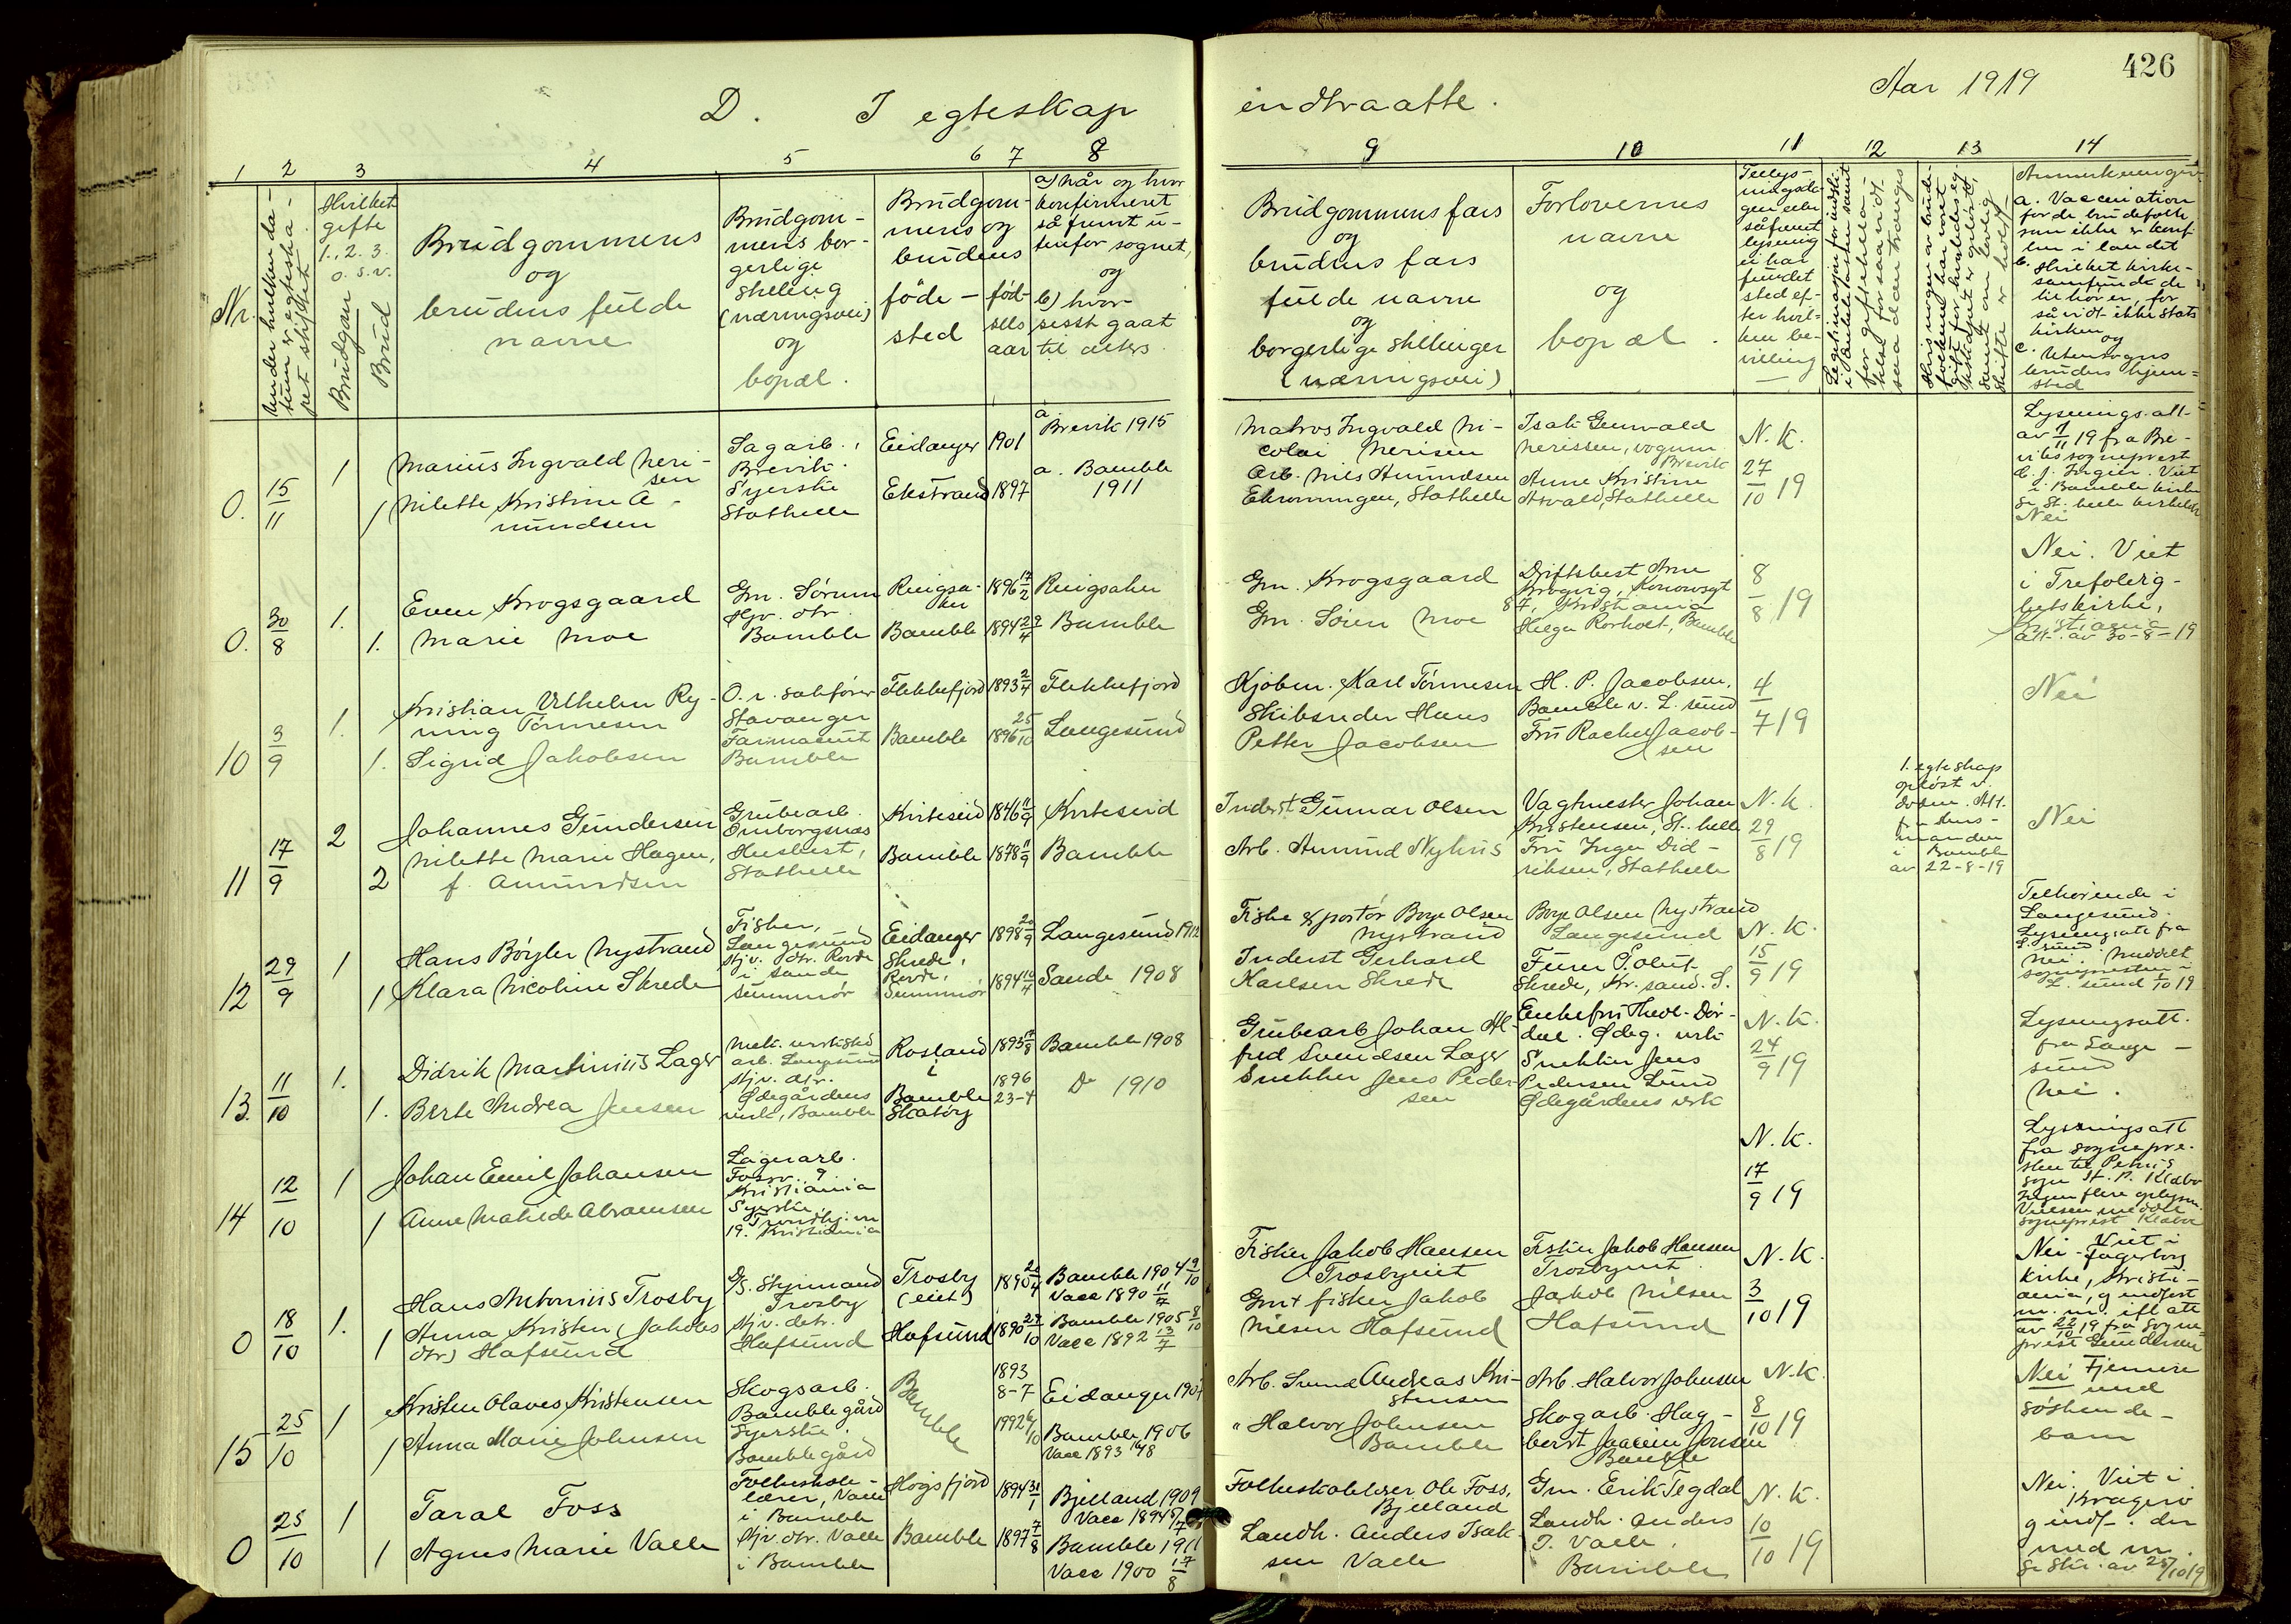 426
Aar 1919
D. I egteskap indtraatte.
1 2 3 4 5 6 7 8 9 10 11 12 13 14
Nr.
Under hvilken da-
tum er egteska-
pet stiftet
Hvilket
gifte
1., 2. 3.
o. s. v.
Brudgom
Brud
Brudgommens
og
brudens fulde
navne
Brudgom-
mens bor-
gerlige
stilling
(næringsvei)
og
bopæl.
Brudgom-
mens og
brudens
føde-
sted
fød-
sels
aar
a) når og hvor
konfirmeret
såfremt u-
tenfor sognet,
og
b) hvor-
sisst gaat
til alters
Brudgommens fars
og
brudens fars
fulde navne
og
borgerlige stillinger
(næringsvei)
Forlovernes
navne
og
bopæl.
Anmerkninger
a. Vaccination
for de brudefolk
som ikke er konf.
her i landet
b. Hvilket kirke-
samfund de
tilhører, for
så vidt ikke Stats
kirken
og
c. Utensogns
brudens hjem-
sted
0. 15/11 1 1
Marius Ingvald Neri-
sen
Nilette Kristine A-
mundsen
Sagarb.,
Brevik.
Syerske
Stathelle
Eidanger 1901
Ekstrand 1897
a Brevik 1915
a. Bamble
1911
Matros Ingvald Ni-
colai Nerisen
Arb. Nils Amundsen
Ekroningen, Stathelle
Isak Gunvald
Nerissen, vognm.
Brevik
Anne Kristine
Asvald, Stathelle
N. K.
27/10 19
Lysnings-att-
av 7/11 19 fra Bre-
viks sogneprest
d. j. Ingen. Viet
i Bamble kirke
Se St. helle kirkebok
Nei
0. 30/8 1. 1.
Even Krogsgaard
Marie Moe
Gm. Sørum
Hjv. dtr.
Bamble
Ringsa-
ker
Bamble
1896 17/2
1894 29/4
Ringsaker
Bamble
Gm. Krogsgaard
Gm. Søren Moe
Driftsbest. Arne
Krogvig, Konowsgt
87, Kristiania
Helge Rørholt, Bamble
8/8 19
Nei. Viet
i Trefoldig-
hetskirke,
Kristiania
att. av 30-8-19
10 3/9 1. 1.
Kristian Vilhelm Ry-
ning Tønnesen
Sigrid Jakobsen
O. r. sakfører
Stavanger
Farmaceut
Bamble
Flekkefjord
Bamble
1893 2/4
1896 25/10
Flekkefjord
Langesund
Kjøbm. Karl Tønnesen
Skibsreder Hans
Petter Jacobsen
H. P. Jacobsen,
Bamble v. L. sund
Fru Rachel Jacob-
sen
4/7 19
Nei
11 17/9 2 2
Johannes Gundersen
Nilette Marie Hagen,
f. Amundsen
Grubearb.
Omborgsnæs
Husbest,
Stathelle
Kviteseid
Bamble
1846 11/9
1878 11/9
Kviteseid
Bamble
Inderst Gunnar Olsen
Arb. Amund Nyhus
Vagtmester Johan
Kristensen, St. helle
Fru Inga Did-
riksen, Stathelle
N. K.
29/8 19
1. egteskap
opløst v.
døden. Att.
fra lens-
manden
i Bamble
av 22-8-19
Nei
12 29/9 1 1
Hans Bøyler Nystrand
Klara Nicoline Skrede
Fisker,
Langesund
Hjv. dtr. Rovde
i Sande
Sunnmør
Eidanger
Skrede,
Rovde,
Sunnmør
1898 20/9
1894 10/4
Langesund 1912
Sande 1908
Fiske exportør Boye Olsen
Nystrand
Inderst Gerhard
Karlsen Skrede
Boye Olsen Nystrand
Langesund
Skrede, Kr. sand. S.
N. K.
15/9 19
Tilhørende i
Langesund.
Lysningsatt. fra
L. sund.
Nei. Meddelt
sognepresten i
L. sund 1/10 19
13. 11/10 1. 1.
Didrik Martinius Lager
Berte Andrea Jensen
Mek. verksted
arb. Langesund
Hjv. dtr.
Ødegårdens
verk, Bamble
Rosland
i
Bamble
Skatøy
1895 17/8
1896
23-4
Bamble 1908
Do 1910
Grubearb Johan Al-
fred Svendsen Lager
Snekker Jens Peder-
sen
Enkefru Theol. Dør-
dal. Ødeg. verk
Snekker Jens
Pedersen Lund
Ødegårdens verk
N. K.
24/9 19
Lysningsatt.
fra Lange-
sund
Nei.
14 12/10 1 1
Johan Emil Johansen
Anne Matilde Abramsen
Lagerarb.
Fossv. 9
Kristiania
Syerske,
Trondhj. vn
19. Kristiania
N. K.
17/9 19
Lysningsatt
fra sognepre-
sten til Petrus
sogn St. P. Klæbo
Ingen flere oplysn.
Vielsen meddelt
sogneprest Klæboe
0 18/10 1. 1
Hans Antonius Trosby
Anna Kristen (Jakobs
dtr) Hafsund
D/S. Styrmand
Trosby
Hjv. dtr.
Hafsund
Trosby
(eiet)
Hafsund
1890 20/4
1890 27/10
Bamble 1904 9/10
Vacc 1890 11/7
Bamble 1905 8/10
Vacc 1892 13/7
Fisker Jakob Hansen
Trosbyeiet
Gm + fisker Jakob
Nilsen Hafsund
Fisker Jakob Hansen
Trosbyeiet
Jakob Nilsen
Hafsund
N. K.
3/10 19
Nei - Viet i
Fagerborg
kirke, Kristi-
ania, g indført
m. m. ifl att
av 22/10 19 fra Sogne-
prest Gundersen
15 25/10 1 1
Kristen Olaves Kristensen
Anna Marie Johnsen
Skogsarb.
Bamble gård
Syerske.
Bamble gård
Bamble
1893
8-7
1992 6/10
Eidanger 1907
Bamble 1906
Vacc 1893 16/8
Arb. Svend Andreas Kri-
stensen
" Halvor Johnsen
Bamble
Arb. Halvor Johnsen
Skogarb. Hag-
bart Joacim Jonsen
Bamble
N. K.
8/10 19
Nei Fjernere
end
søskende-
barn
0 25/10 1 1
Taral Foss
Agnes Marie Valle
Folkeskole-
lærer, Valle
i Bamble
Hjv. dtr. Valle
i Bamble
Høgsfjord
Bamble
1894 31/1
1897 7/8
Bjelland 1909
Vacc 1894
Bamble 1911
Vacc 1900 17/8
Folkeskolelærer Ole Foss,
Bjelland
Landh. Anders Isak-
sen Valle
Gm. Erik Tegdal
Landh. Anders
I. Valle,
Bamble
N. K.
10/10 19
Nei. Viet i
Kragerø
g indf. der
med nr.
Se skr. av 25/10 19